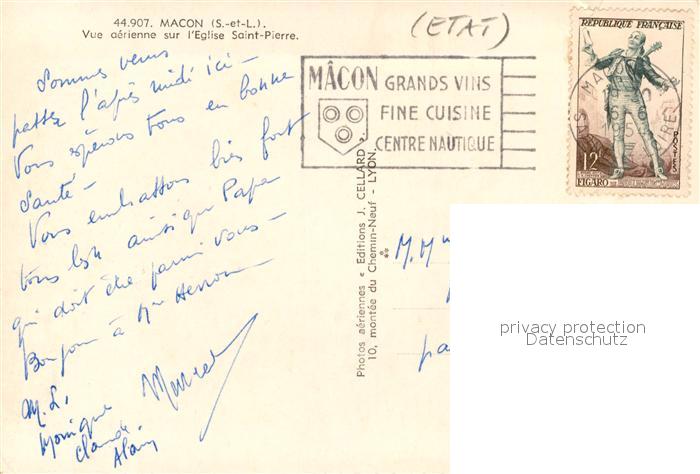 44.907. MACON (S.-et-L.).
Vue aérienne sur l'Eglise Saint-Pierre.
(ETAT)
Sommes venus
passer l'après midi ici -
Vous espérons tous en bonne
santé -
Vous embrassons bien fort
tous les ainsi que Papa
qui doit être parmi vous -
Bonjour à Mme
M. L.
Monique
Claude
Alain
Marcel
MÂCON GRANDS VINS
FINE CUISINE
CENTRE NAUTIQUE
REPUBLIQUE FRANÇAISE
POSTES
12F
FIGARO
Photos aériennes « Editions J. CELLARD »
10, montée du Chemin-Neuf - LYON.
M. Mme
privacy protection
Datenschutz